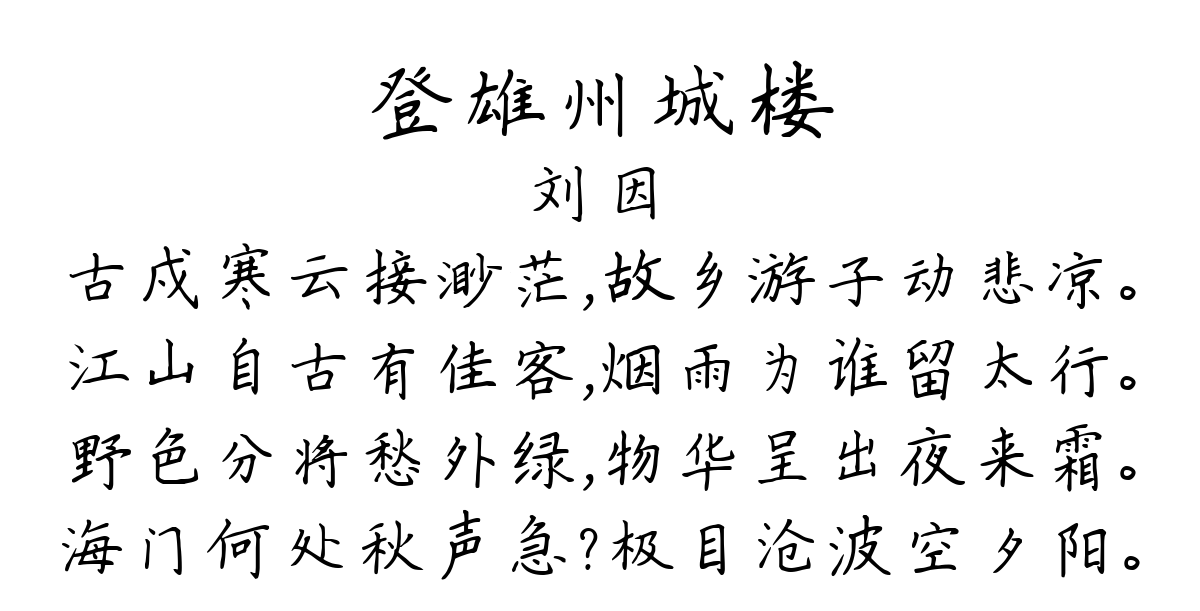 登雄州城楼
刘因
古戍寒云接渺茫,故乡游子动悲凉。
江山自古有佳客,烟雨为谁留太行。
野色分将愁外绿,物华呈出夜来霜。
海门何处秋声急?极目沧波空夕阳。